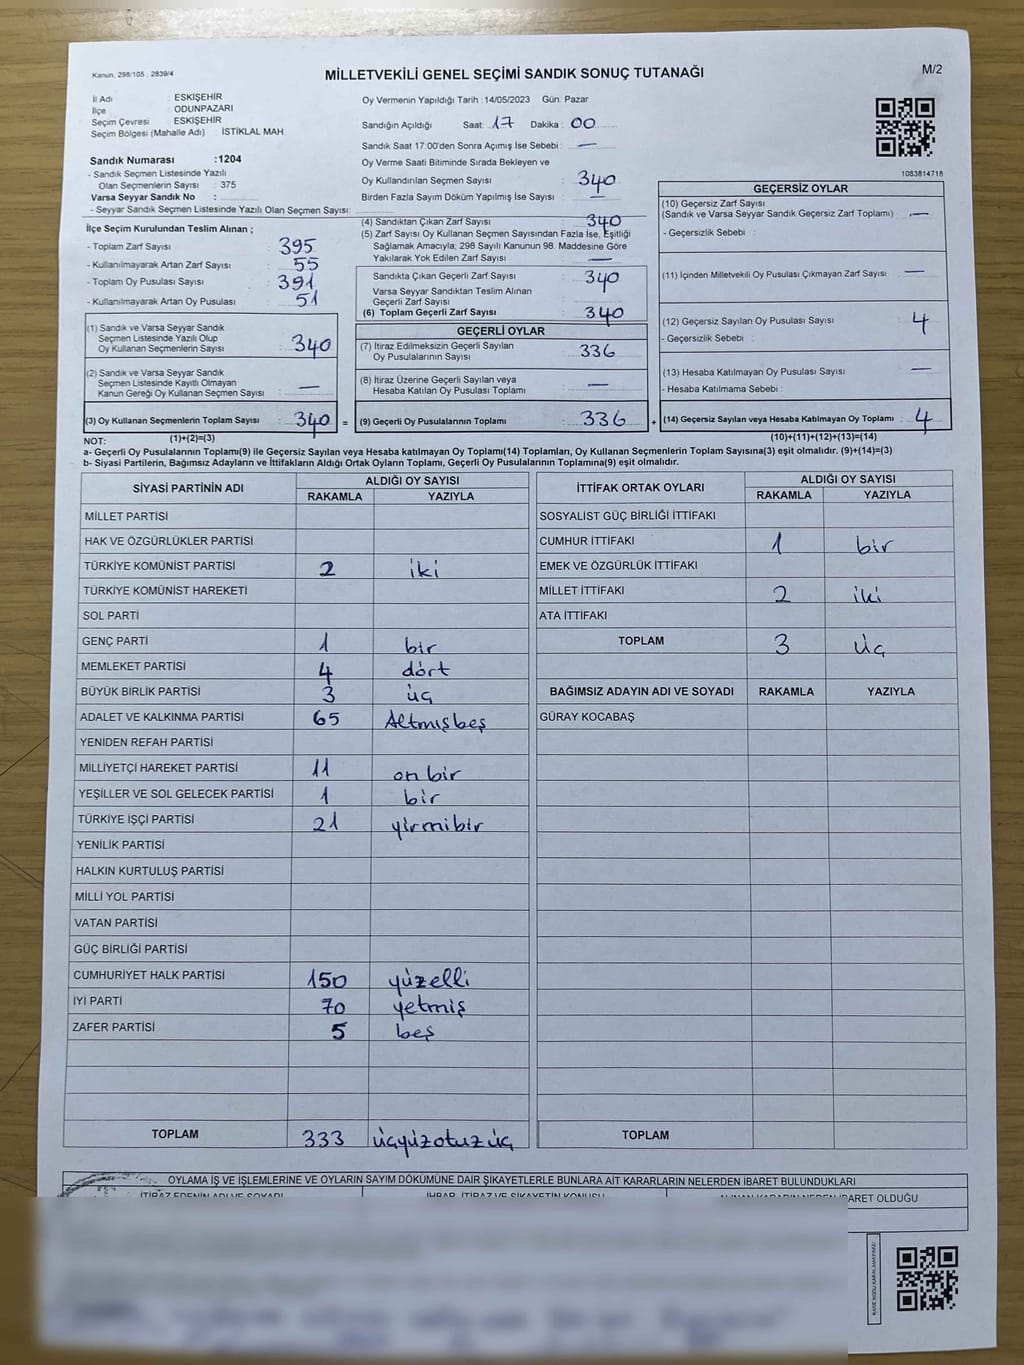 Kanun, 298/105 , 2839/4
MİLLETVEKİLİ GENEL SEÇİMİ SANDIK SONUÇ TUTANAĞI
M/2
İl Adı : ESKİŞEHİR
İlçe : ODUNPAZARI
Seçim Çevresi : ESKİŞEHİR
Seçim Bölgesi (Mahalle Adı) : İSTİKLAL MAH.
Sandık Numarası :1204
- Sandık Seçmen Listesinde Yazılı
Olan Seçmenlerin Sayısı : 375
Varsa Seyyar Sandık No :
- Seyyar Sandık Seçmen Listesinde Yazılı Olan Seçmen Sayısı:
Oy Vermenin Yapıldığı Tarih : 14/05/2023 Gün: Pazar
Sandığın Açıldığı Saat: 17 Dakika : 00
Sandık Saat 17:00'den Sonra Açımış İse Sebebi : —
Oy Verme Saati Bitiminde Sırada Bekleyen ve
Oy Kullandırılan Seçmen Sayısı : 340
Birden Fazla Sayım Döküm Yapılmış İse Sayısı : —
1083814718
İlçe Seçim Kurulundan Teslim Alınan ;
- Toplam Zarf Sayısı : 395
- Kullanılmayarak Artan Zarf Sayısı : 55
- Toplam Oy Pusulası Sayısı : 391
- Kullanılmayarak Artan Oy Pusulası : 51
(1) Sandık ve Varsa Seyyar Sandık
Seçmen Listesinde Yazılı Olup
Oy Kullanan Seçmenlerin Sayısı : 340
(2) Sandık ve Varsa Seyyar Sandık
Seçmen Listesinde Kayıtlı Olmayan
Kanun Gereği Oy Kullanan Seçmen Sayısı : —
(3) Oy Kullanan Seçmenlerin Toplam Sayısı : 340 =
(1)+(2)=(3)
(4) Sandıktan Çıkan Zarf Sayısı : 340
(5) Zarf Sayısı Oy Kullanan Seçmen Sayısından Fazla İse, Eşitliği
Sağlamak Amacıyla; 298 Sayılı Kanunun 98. Maddesine Göre
Yakılarak Yok Edilen Zarf Sayısı : —
Sandıkta Çıkan Geçerli Zarf Sayısı : 340
Varsa Seyyar Sandıktan Teslim Alınan
Geçerli Zarf Sayısı :
(6) Toplam Geçerli Zarf Sayısı : 340
GEÇERLİ OYLAR
(7) İtiraz Edilmeksizin Geçerli Sayılan
Oy Pusulalarının Sayısı : 336
(8) İtiraz Üzerine Geçerli Sayılan veya
Hesaba Katılan Oy Pusulası Toplamı : —
(9) Geçerli Oy Pusulalarının Toplamı : 336 +
GEÇERSİZ OYLAR
(10) Geçersiz Zarf Sayısı
(Sandık ve Varsa Seyyar Sandık Geçersiz Zarf Toplamı) : —
- Geçersizlik Sebebi :
(11) İçinden Milletvekili Oy Pusulası Çıkmayan Zarf Sayısı : —
(12) Geçersiz Sayılan Oy Pusulası Sayısı : 4
- Geçersizlik Sebebi :
(13) Hesaba Katılmayan Oy Pusulası Sayısı : —
- Hesaba Katılmama Sebebi :
(14) Geçersiz Sayılan veya Hesaba Katılmayan Oy Toplamı : 4
(10)+(11)+(12)+(13)=(14)
NOT:
a- Geçerli Oy Pusulalarının Toplamı(9) ile Geçersiz Sayılan veya Hesaba katılmayan Oy Toplamı(14) Toplamları, Oy Kullanan Seçmenlerin Toplam Sayısına(3) eşit olmalıdır. (9)+(14)=(3)
b- Siyasi Partilerin, Bağımsız Adayların ve İttifakların Aldığı Ortak Oyların Toplamı, Geçerli Oy Pusulalarının Toplamına(9) eşit olmalıdır.
SİYASİ PARTİNİN ADI ALDIĞI OY SAYISI
RAKAMLA YAZIYLA
MİLLET PARTİSİ
HAK VE ÖZGÜRLÜKLER PARTİSİ
TÜRKİYE KOMÜNİST PARTİSİ 2 iki
TÜRKİYE KOMÜNİST HAREKETİ
SOL PARTİ
GENÇ PARTİ 1 bir
MEMLEKET PARTİSİ 4 dört
BÜYÜK BİRLİK PARTİSİ 3 üç
ADALET VE KALKINMA PARTİSİ 65 Altmışbeş
YENİDEN REFAH PARTİSİ
MİLLİYETÇİ HAREKET PARTİSİ 11 on bir
YEŞİLLER VE SOL GELECEK PARTİSİ 1 bir
TÜRKİYE İŞÇİ PARTİSİ 21 yirmibir
YENİLİK PARTİSİ
HALKIN KURTULUŞ PARTİSİ
MİLLİ YOL PARTİSİ
VATAN PARTİSİ
GÜÇ BİRLİĞİ PARTİSİ
CUMHURİYET HALK PARTİSİ 150 yüzelli
İYİ PARTİ 70 yetmiş
ZAFER PARTİSİ 5 beş
TOPLAM 333 üçyüzotuzüç
İTTİFAK ORTAK OYLARI ALDIĞI OY SAYISI
RAKAMLA YAZIYLA
SOSYALİST GÜÇ BİRLİĞİ İTTİFAKI
CUMHUR İTTİFAKI 1 bir
EMEK VE ÖZGÜRLÜK İTTİFAKI
MİLLET İTTİFAKI 2 iki
ATA İTTİFAKI
TOPLAM 3 üç
BAĞIMSIZ ADAYIN ADI VE SOYADI RAKAMLA YAZIYLA
GÜRAY KOCABAŞ
TOPLAM
OYLAMA İŞ VE İŞLEMLERİNE VE OYLARIN SAYIM DÖKÜMÜNE DAİR ŞİKAYETLERLE BUNLARA AİT KARARLARIN NELERDEN İBARET BULUNDUKLARI
İTİRAZ EDENİN ADI VE SOYADI İHBAR, İTİRAZ VE ŞİKAYETİN KONUSU ALINAN KARARIN NEDEN İBARET OLDUĞU
(KARE KODU KARALAMAYINIZ)